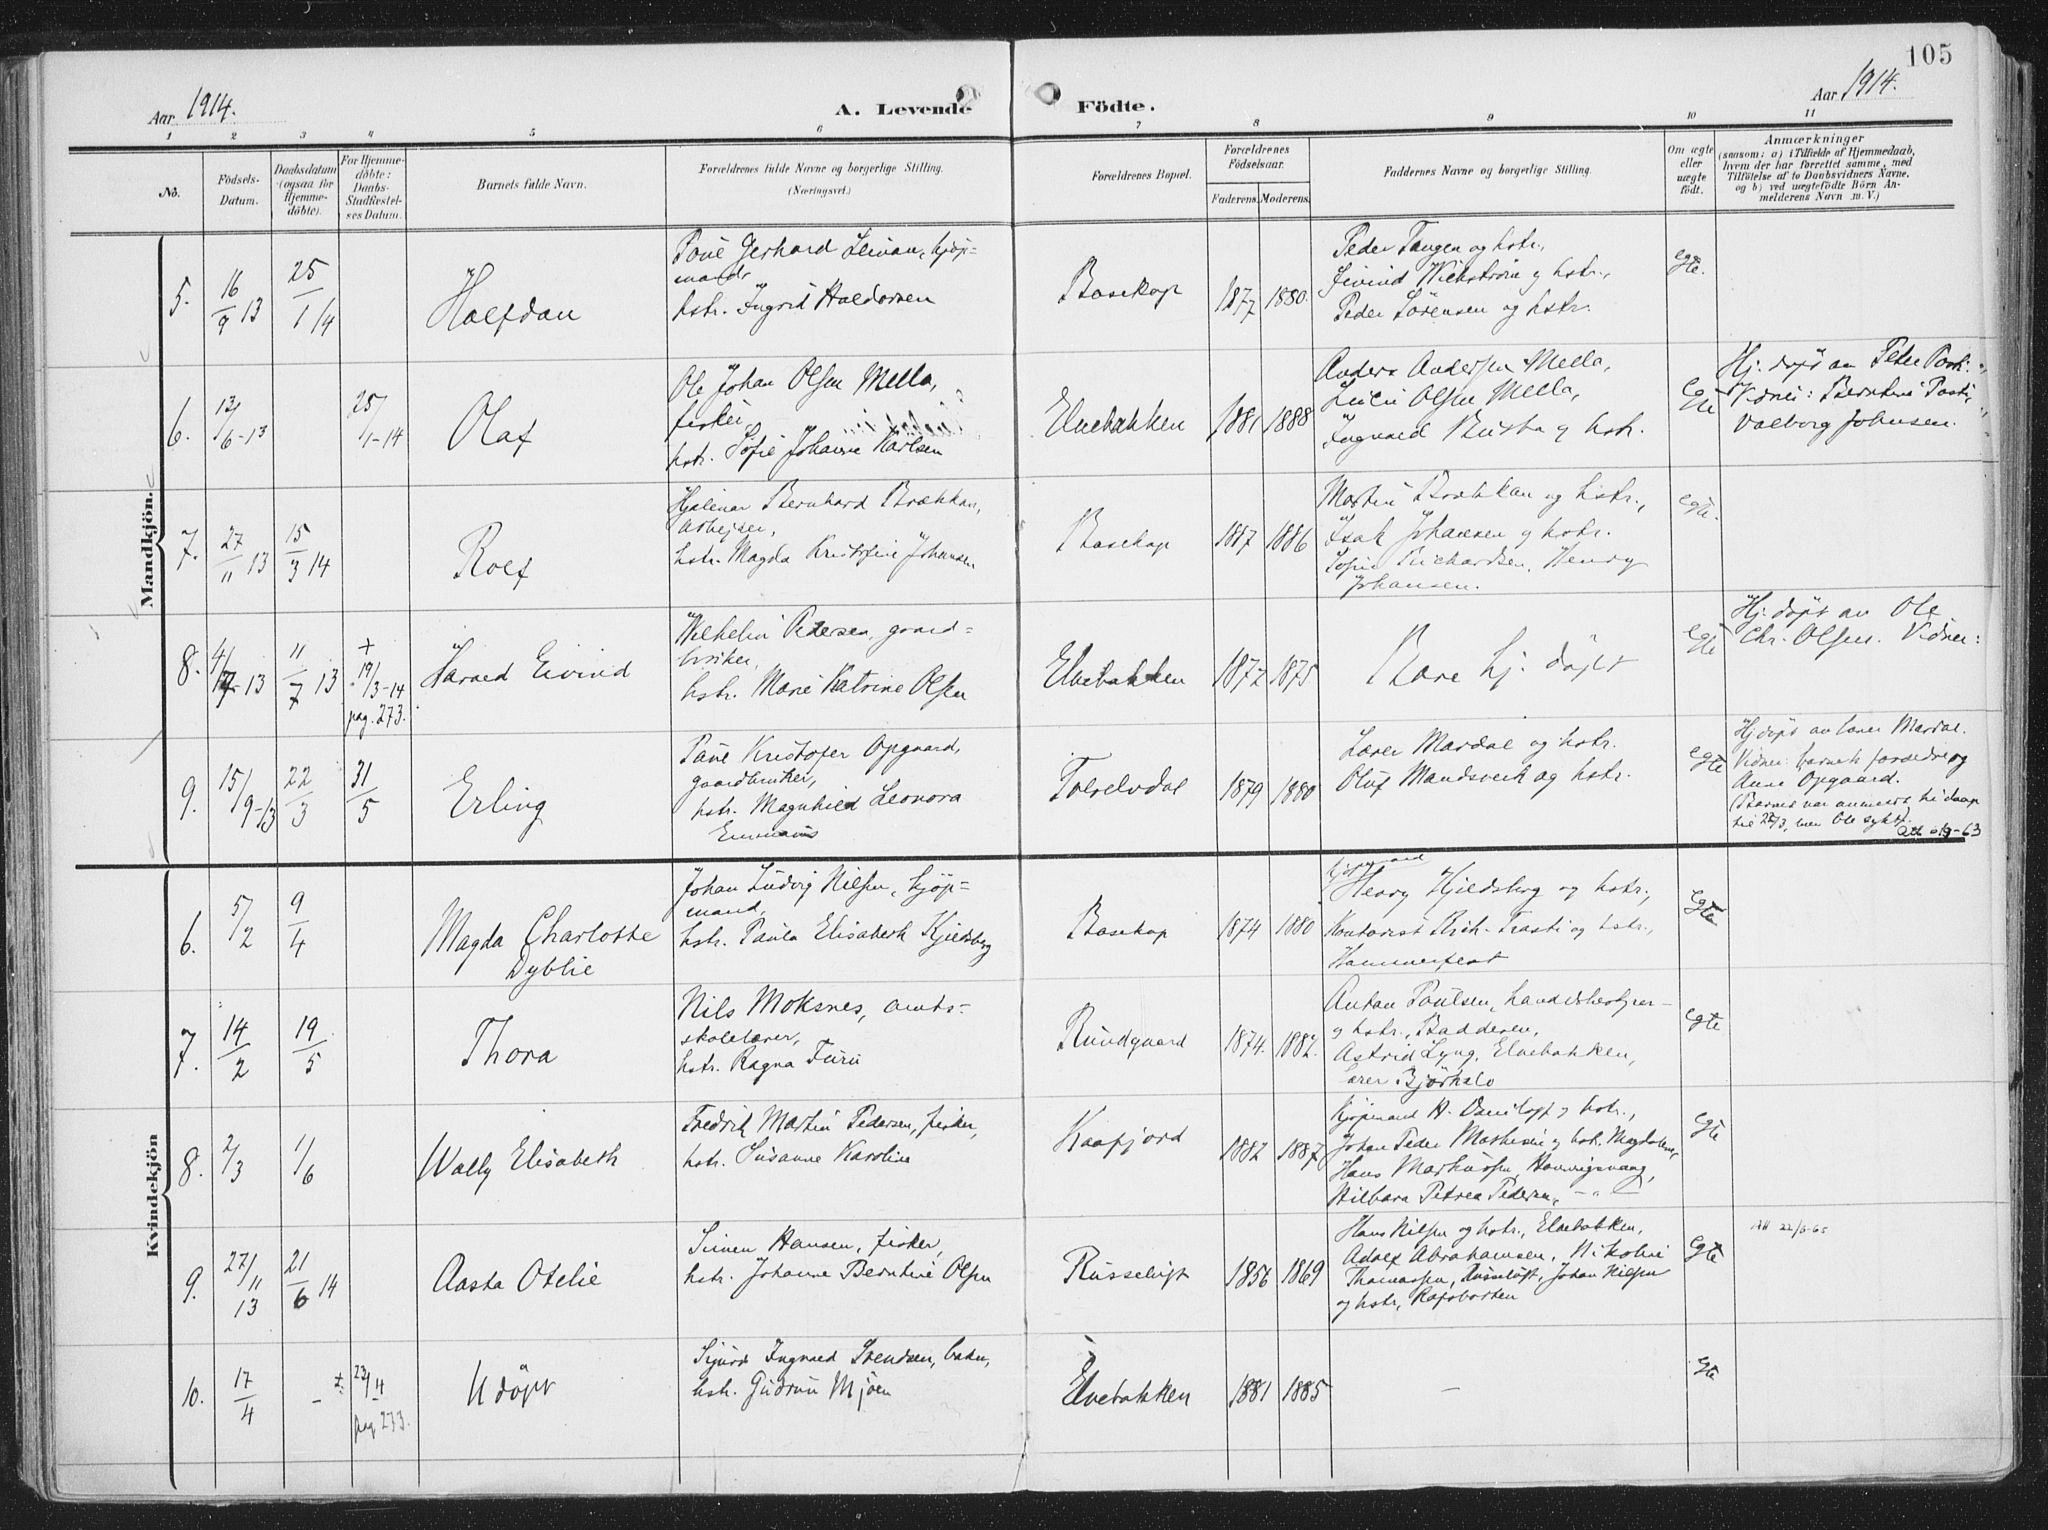 105
Aar 1914.
A. Levende Födte.
Aar 1914.
1 2 3 4 5 6 7 8 9 10 11
No.
Födsels-
Datum.
Daabsdatum
(ogsaa for
Hjemme-
döbte).
For Hjemme-
döbte:
Daabs-
Stadfæstel-
ses Datum.
Barnets fulde Navn.
Forældrenes fulde Navne og borgerlige Stilling.
(Næringsvei.)
Forældrenes Bopæl.
Forældrenes
Födselsaar.
Faderens. Moderens.
Faddernes Navne og borgerlige Stilling.
Om ægte
eller
uægte
födt.
Anmærkninger
(saasom: a) i Tilfælde af Hjemmedaab,
hvem der har forrettet samme, med
Tilföielse af to Daabsvidners Navne,
og b) ved uægtefödte Börn An-
melderens Navn m. V.)
Mandkjön.
5. 16/9 13 25/1 14 Halfdan
Gerhard kjöp-
mand,
hstr. Ingrid Haldorsen
Bosekop 1877 1880.
Peder Tangen og hstr.,
Eivind Wickström og hstr.,
Peder Sörensen og hstr.
egte.
6. 13/6-13 25/1-14 Olaf
Ole Johan Olsen Mella,
fisker,
hstr. Sofie Johanne Karlsen
Elvebakken 1881 1888
Anders Andersen Mella,
Olsen Mella,
Ingvald og hstr.
egte
Hj. döpt av Peter
Vidner: Berntine
Valborg Johnsen.
7. 27/11 13 15/3 14 Rolf
Hjalmar Bernhard Brækkan,
arbeider,
hstr. Magda Kristofine Johansen
Bosekop 1887 1886
Martin Brækkan og hstr.,
Isak Johansen og hstr.
Sofie Richardsen, Henry
Johansen.
egte.
8. 4/7-13 11/7 13 + 19/3-14
pag. 273.
Harald Eivind
Wilhelm Pedersen, gaard-
bruker,
hstr. Marie Katrine Olsen
Elvebakken 1872 1875
Bare hj. döpt
egte
Hj. döpt av Ole
Chr. Olsen. Vidner:
9. 15/9-13 22/3 31/5 Erling
Kristofer Opgaard,
gaardbruker,
hstr. Magnhild Leonora
Tverelvdal 1879 1880
Lærer Mardal og hstr.
Oluf Mandsverk og hstr.
egte
Hj döpt av lærer Mardal.
Vidner: barnets forældre og
Anne Opgaard.
(Barnet var anmeldt til daap
til 22/3, men ble sykt).
Kvindekjön
6. 5/2 9/4 Magda Charlotte
Dyblie
Johan Ludvig Nilsen, kjöp-
mand,
hstr. Paula Elisabeth Kjeldsberg
Bosekop 1874 1880
kjöpmand
Henry Kjeldsberg og hstr.,
Kontorist Rich. Trasti og hstr.,
Hammerfest
egte
7. 14/2 19/5 Thora
Nils Moksnes, amts-
skolelærer,
hstr. Ragna Furu
Rundgaard 1874. 1882.
Anton Paulsen, handelsbestyrer
og hstr., Badderen,
Astrid Lyng, Elvebakken,
lærer Björkelo
egte
8. 2/3 1/6 Wally Elisabeth
Fredrik Martin Pedersen, fisker,
hstr. Susanne Karoline
Kaafjord 1882 1887
Kjöpmand H. og hstr.,
Johan Peder Mathisen og hstr. Magdalene,
Hans Markussen,
Petrea Pedersen, - " -
egte
9. 27/11 13 21/6 14 Aasta Otelie
Simen Hansen, fisker,
hstr. Johanne Berntine Olsen
Russeluft 1856 1869
Hans Nilsen og hstr., Elvebakken,
Adolf Abrahamsen, Nikoline
Thomassen, Russeluft, Johan Nilsen
og hstr, Rafsbotten
egte
10. 17/4 - + 23/4
pag 273.
Udöpt
Sigurd Ingvald Svendsen,
hstr. Gudrun Mjöen
Elvebakken 1881 1885 -
egte